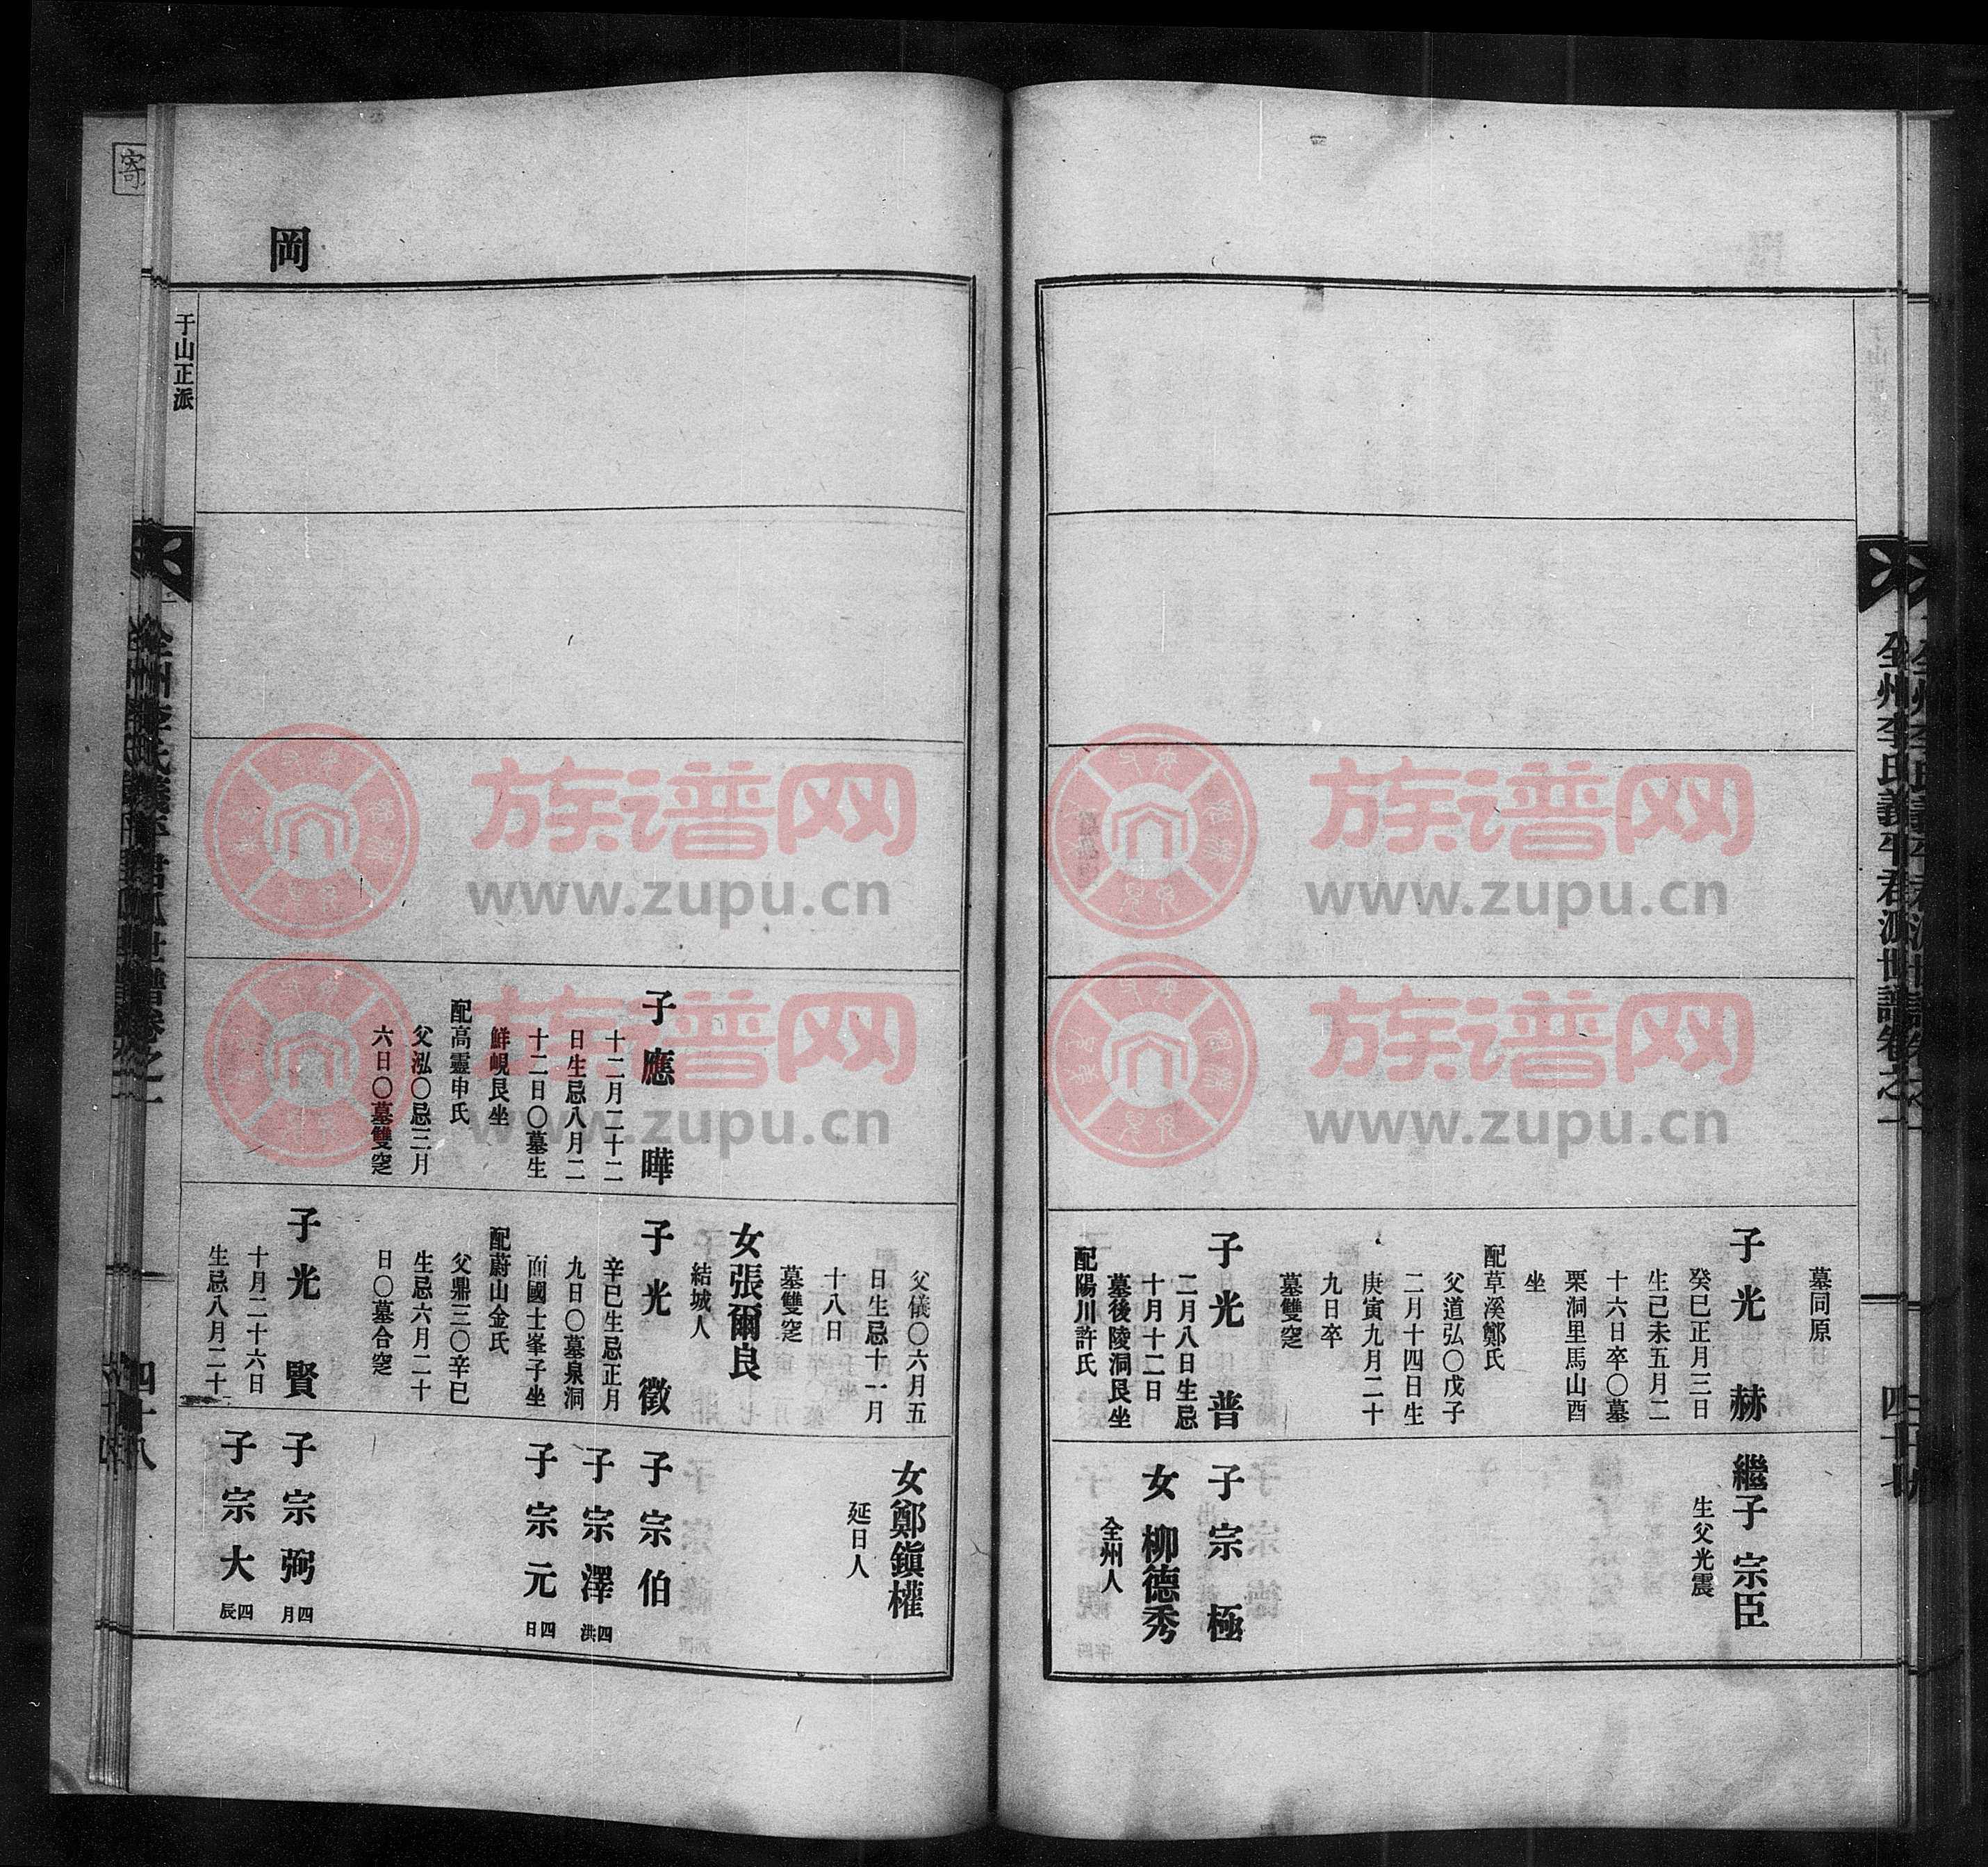 全州李氏義平君派世譜卷之一
墓同原
子光赫
癸巳正月三日
生己未五月二
十六日卒〇墓
栗洞里馬山酉
坐
配草溪鄭氏
父道弘〇戊子
二月十四日生
庚寅九月二十
九日卒
墓雙窆
子光普
二月八日生忌
十月十二日
墓後陵洞艮坐
配陽川許氏
繼子宗臣
生父光震
子宗極
女柳德秀
全州人
岡
子應曄
十二月二十二
日生忌八月二
十二日〇墓生
鮮峴艮坐
配高靈申氏
父泓〇忌三月
六日〇墓雙窆
父儀〇六月五
日生忌十一月
十八日
墓雙窆
女張爾良
結城人
子光徵
辛巳生忌正月
九日〇墓泉洞
面國士峯子坐
配蔚山金氏
父鼎三〇辛巳
生忌六月二十
日〇墓合窆
子光賢
十月二十六日
生忌八月二十
女鄭鎭權
延日人
子宗伯
子宗澤
四洪
子宗元
四日
子宗弼
四月
子宗大
四辰
于山正派
四十八
寄
族谱网
www.zupu.cn
族谱网
www.zupu.cn
族谱网
www.zupu.cn
族谱网
www.zupu.cn